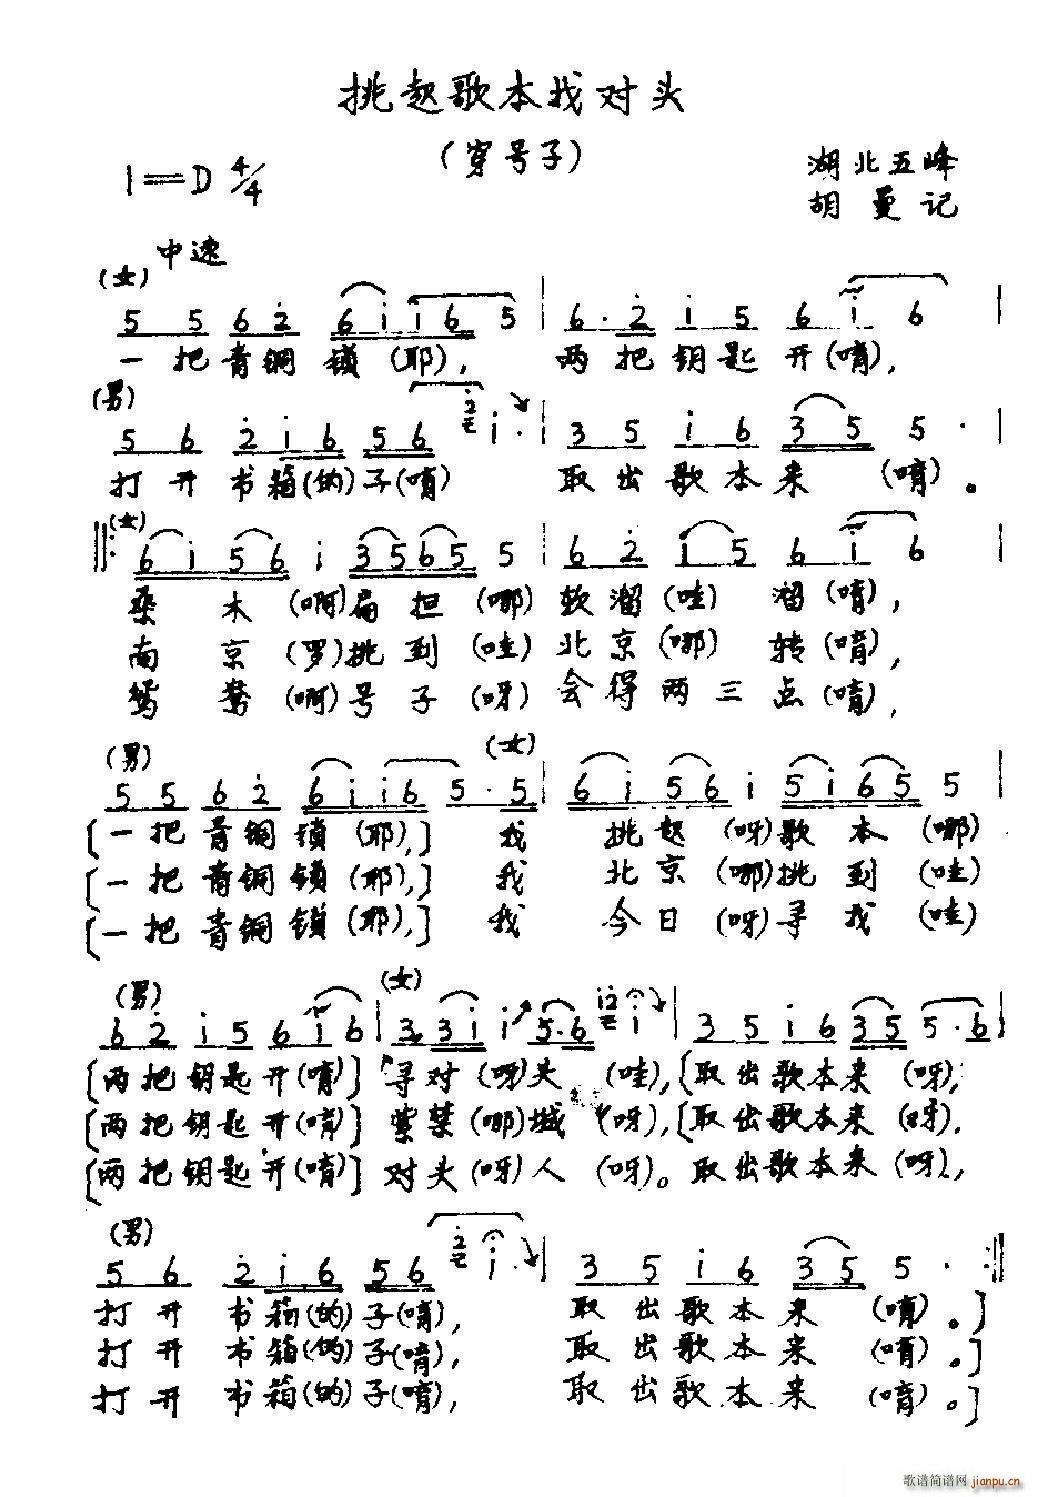 挑起歌本找对头
(穿号子)
1=D 4/4
湖北五峰
胡曼记
中速
(女)
5 5 6 2̇ 6 i i 6 5 | 6· 2̇ i 5 6 i 6 |
一把青铜锁(耶), 两把钥匙开(唷),
(男)
5 6 2̇ i 6 5 6 2̇ i· | 3 5 i 6 3 5 5· |
打开书箱(的)子(唷) 取出歌本来(唷)。
(女)
6 i 5 6 i 3 5 6 5 5 | 6 2̇ i 5 6 i 6 |
桑木(啊)扁担(哪)软溜(哇)溜(唷),
南京(罗)挑到(哇)北京(哪)转(唷),
鸳鸯(啊)号子(呀)会得两三点(唷),
(男) (女)
5 5 6 2̇ 6 i i 6 5· 5 | 6 i 5 6 i 5 i 6 5 5 |
[一把青铜锁(耶),] 我 挑起(呀)歌本(哪)
[一把青铜锁(耶),] 我 北京(哪)挑到(哇)
[一把青铜锁(耶),] 我 今日(呀)寻找(哇)
(男) (女)
6 2̇ i 5 6 i 6 | 3 3 i i 5·6 i 2̇ i | 3 5 i 6 3 5 5·6 |
[两把钥匙开(唷)] 寻对(呀)头(哇),[取出歌本来(呀),
[两把钥匙开(唷)] 紫禁(哪)城(呀),[取出歌本来(呀),
[两把钥匙开(唷)] 对头(呀)人(呀)。取出歌本来(呀),
(男)
5 6 2̇ i 6 5 6 2̇ i | 3 5 i 6 3 5 5· :||
打开书箱(的)子(唷), 取出歌本来(唷)。]
打开书箱(的)子(唷), 取出歌本来(唷)。]
打开书箱(的)子(唷), 取出歌本来(唷)。]
歌谱简谱网 jianpu.cn